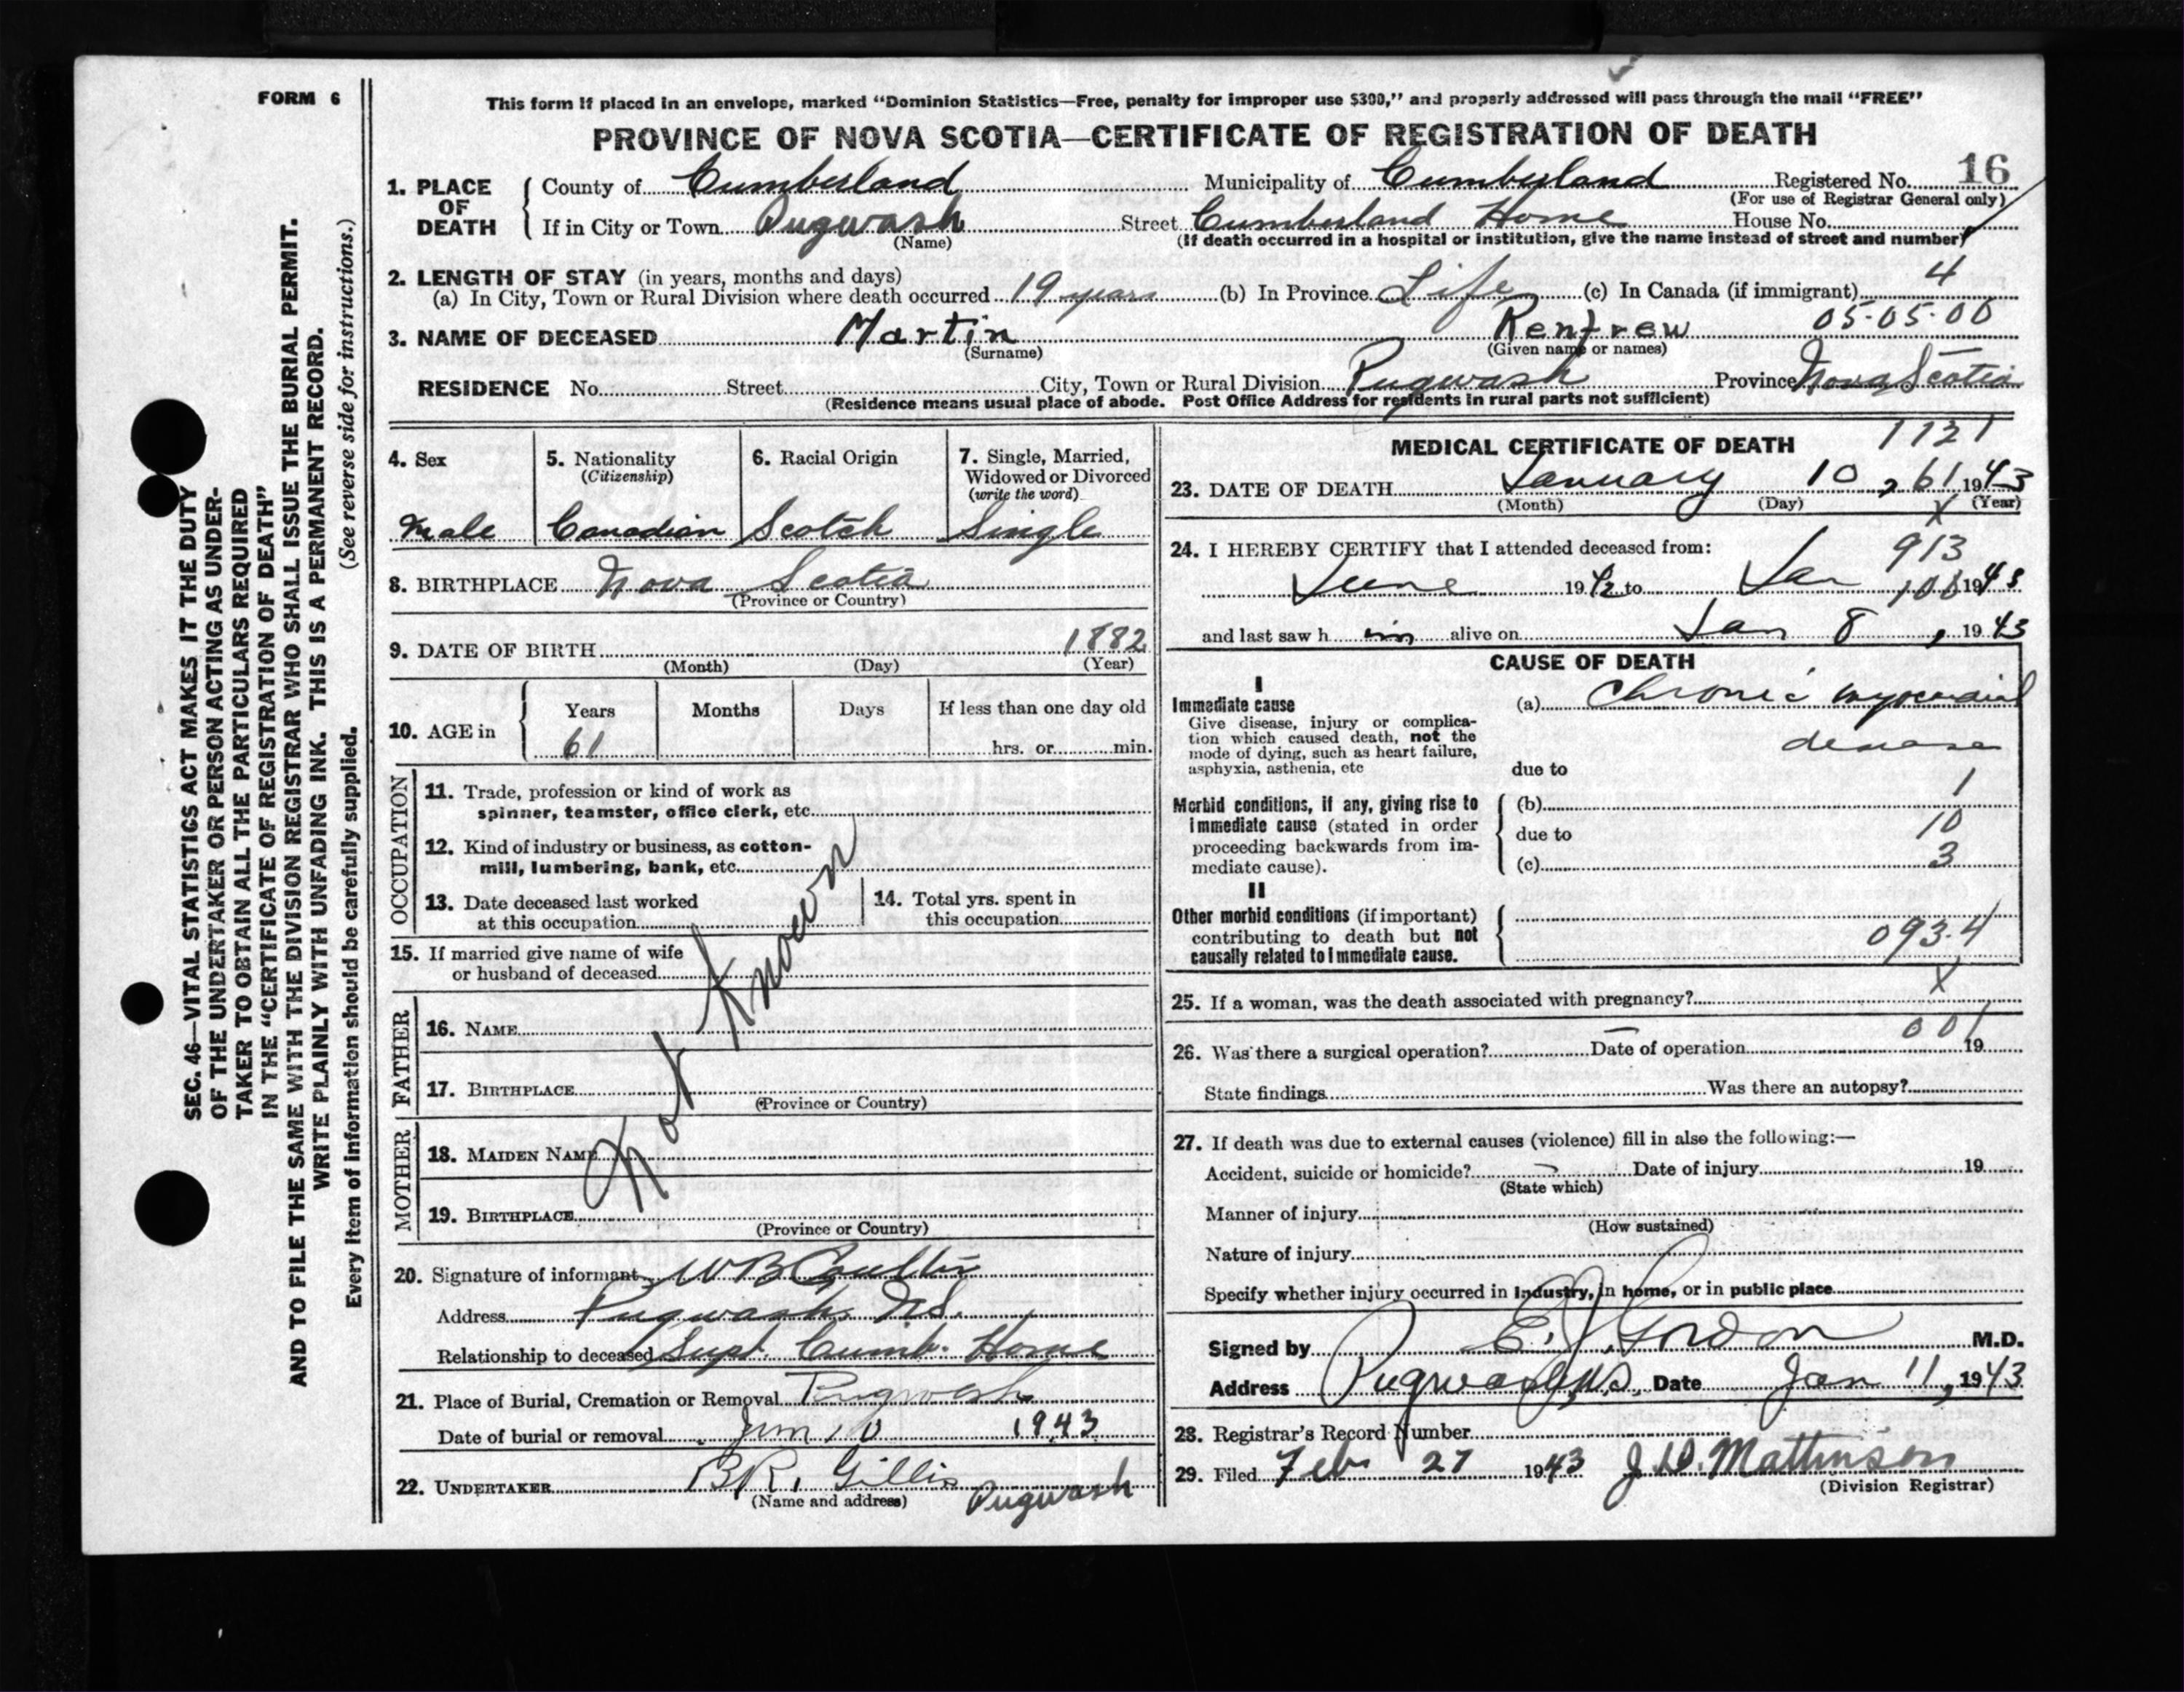 FORM 6
This form if placed in an envelope, marked "Dominion Statistics—Free, penalty for improper use $300," and properly addressed will pass through the mail "FREE"
PROVINCE OF NOVA SCOTIA—CERTIFICATE OF REGISTRATION OF DEATH
1. PLACE OF DEATH County of Cumberland Municipality of Cumberland Registered No. 16
(For use of Registrar General only)
If in City or Town Pugwash Street Cumberland Home House No.
(Name) (If death occurred in a hospital or institution, give the name instead of street and number)
2. LENGTH OF STAY (in years, months and days) 4
(a) In City, Town or Rural Division where death occurred 19 years (b) In Province Life (c) In Canada (if immigrant)
05-05-00
3. NAME OF DECEASED Martin Renfrew
(Surname) (Given name or names)
RESIDENCE No. Street City, Town or Rural Division Pugwash Province Nova Scotia
(Residence means usual place of abode. Post Office Address for residents in rural parts not sufficient)
4. Sex 5. Nationality (Citizenship) 6. Racial Origin 7. Single, Married, Widowed or Divorced (write the word)
Male Canadian Scotch Single
8. BIRTHPLACE Nova Scotia
(Province or Country)
9. DATE OF BIRTH 1882
(Month) (Day) (Year)
10. AGE in Years Months Days If less than one day old
61 hrs. or min.
OCCUPATION
11. Trade, profession or kind of work as
spinner, teamster, office clerk, etc.
12. Kind of industry or business, as cotton-
mill, lumbering, bank, etc.
13. Date deceased last worked
at this occupation
14. Total yrs. spent in
this occupation
15. If married give name of wife
or husband of deceased
Not Known
FATHER
16. NAME
17. BIRTHPLACE
(Province or Country)
MOTHER
18. MAIDEN NAME
19. BIRTHPLACE
(Province or Country)
20. Signature of informant W B Coulter
Address Pugwash N.S.
Relationship to deceased Supt. Cumb. Home
21. Place of Burial, Cremation or Removal Pugwash
Date of burial or removal 10 1943
22. UNDERTAKER B R. Gillis
(Name and address) Pugwash
MEDICAL CERTIFICATE OF DEATH 1121
23. DATE OF DEATH January 10, 61 1943
(Month) (Day) (Year)
X
24. I HEREBY CERTIFY that I attended deceased from: 913
June 1942 to Jan 1943
and last saw him alive on Jan 8, 1943
CAUSE OF DEATH
I
Immediate cause
Give disease, injury or complica-
tion which caused death, not the
mode of dying, such as heart failure,
asphyxia, asthenia, etc
(a) Chronic myocardial
disease
due to
Morbid conditions, if any, giving rise to
immediate cause (stated in order
proceeding backwards from im-
mediate cause).
(b) 1
due to 10
(c) 3
II
Other morbid conditions (if important)
contributing to death but not
causally related to immediate cause.
093.4
X
25. If a woman, was the death associated with pregnancy?
001
26. Was there a surgical operation? — Date of operation 19
State findings Was there an autopsy?
27. If death was due to external causes (violence) fill in also the following:—
Accident, suicide or homicide? Date of injury 19
(State which)
Manner of injury
(How sustained)
Nature of injury
Specify whether injury occurred in industry, in home, or in public place
Signed by E. J. Gordon M.D.
Address Pugwash, N.S. Date Jan 11, 1943
28. Registrar's Record Number
29. Filed Feb 27 1943 J. D. Mattinson
(Division Registrar)
SEC. 46—VITAL STATISTICS ACT MAKES IT THE DUTY
OF THE UNDERTAKER OR PERSON ACTING AS UNDER-
TAKER TO OBTAIN ALL THE PARTICULARS REQUIRED
IN THE "CERTIFICATE OF REGISTRATION OF DEATH"
AND TO FILE THE SAME WITH THE DIVISION REGISTRAR WHO SHALL ISSUE THE BURIAL PERMIT.
WRITE PLAINLY WITH UNFADING INK. THIS IS A PERMANENT RECORD.
Every item of information should be carefully supplied. (See reverse side for instructions.)